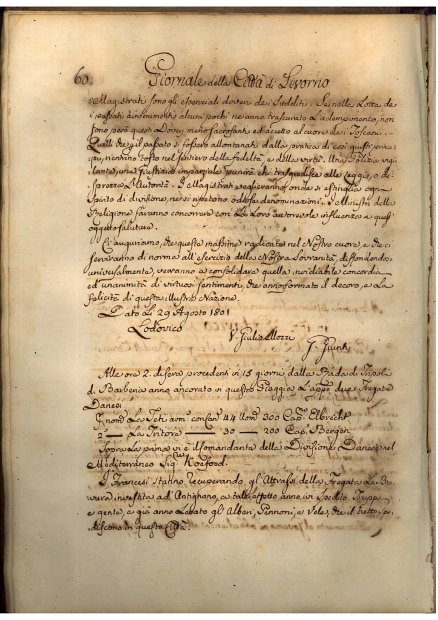 60. Giornale della Città di Livorno
Magistrati sono gli essenziali doveri dei Sudditi. Se nelle Lotte de
passati avvenimenti alcuni pochi ne anno trascurato L'adempimento, non
sono però questi Doveri meno sacrosanti ed accetti al cuore dei Toscani.
Quelli che pel passato si fossero allontanati dalla pratica di essi
rientrino tosto nel sentiero della fedeltà, e della virtù. Una Polizia vigi-
lante, una Giustizia imparziale punirà chi trasgredisse alle Leggi, o di-
sprezza L'Autorità. I Magistrati veglieranno, onde si estingua ogni
spirito di divisione, nè si ripetano odiose denominazioni. I Ministri della
Religione faranno concorrere con La Loro autorevole influenza a quest'
oggetto salutare.
Ci auguriamo, che queste massime radicate nel Nostro cuore, e che ci
serviranno di norma all'Esercizio della Nostra Sovranità diffondendosi
universalmente, verranno a consolidare quella invidiabile concordia
ed unanimità di virtuosi sentimenti, che anno formato il decoro, e La
felicità di questa illustre Nazione.
Dato Li 29 Agosto 1801
Lodovico
V. Giulio Mozzi
G. Giunti
Alle ore 2. di sera procedenti in 15 giorni dalla Rada di Tripoli
di Barberia anno ancorato in questa Spiaggia L'appie due Fregate
Danesi
1 nom. La Teti com. con Can. 44 Uom. 300 Cap. Elbrecht
2 — La Tritone — 30 — 200 Cap. Bergen
Sopra La prima vi è il Comandante della Divisione Danese nel
Mediterraneo Sig. Koefoed.
I Francesi stanno recuperando gl'Attrassi della Fregata La Bra-
vura investita ad Antignano, a tale effetto anno ivi spedito Truppe
e gente, e già anno Levato gl'Alberi, Pennoni, e Vele, che il tutto spe-
discono in questa Città.